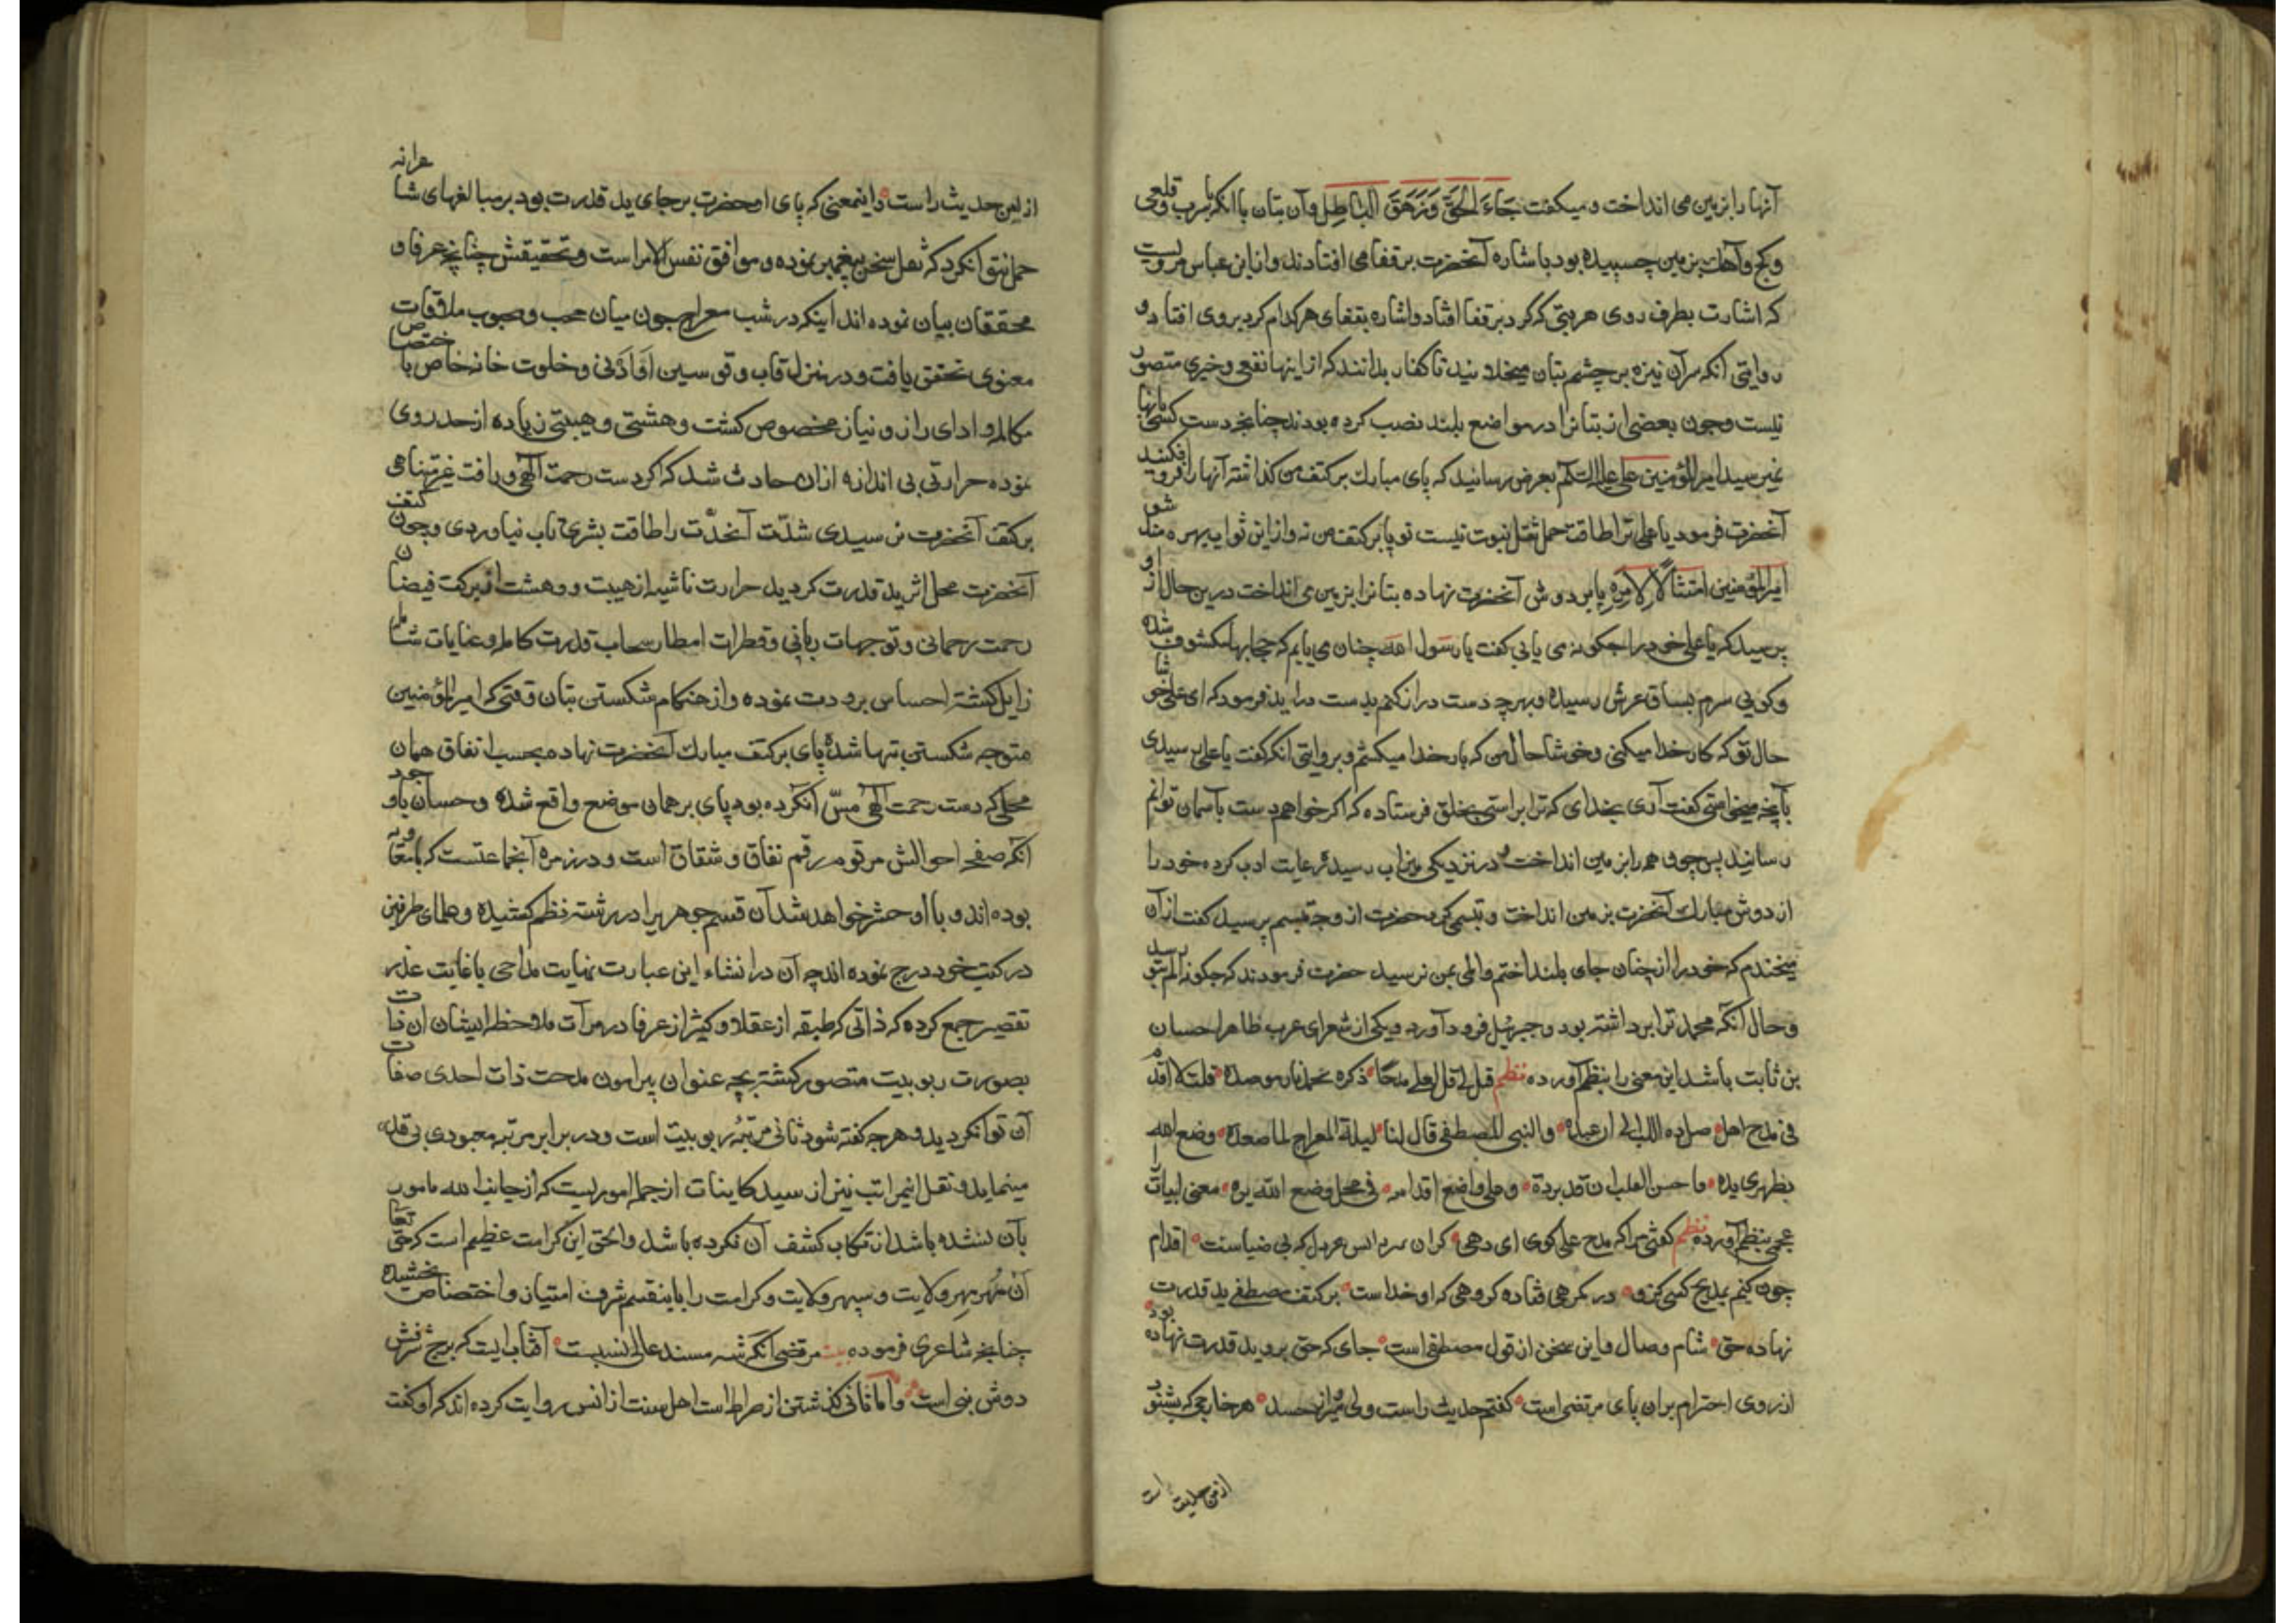 آنها را بزمین می انداخت و میکفت جَاءَ الحَقُّ وَزَهَقَ الْبَاطِلُ وآن بتان با آنکه بسرب وقلعی
وکچ وآهک بزمین چسبیده بود باشاره آنحضرت برقفا می افتادند وازابن عباس مرویست
که اشارت بطرف روی هر بتی که کرد برقفا افتاد واشاره بقفای هرکدام کرد بروی افتاد و
روایتی آنکه سرآن نیزه برچشم بتان میخلانید تا کفار بدانند که ازاینها نفعی وخیری متصور
نیست وچون بعضی از بتانرا در مواضع بلند نصب کرده بودند چنانچه دست کسی بآنها
نمیرسید امیرالمؤمنین علی علیه السلم بعرض رسانید که پای مبارک برکتف من کذاشته آنها را فروافکنید
آنحضرت فرمود یا علی ترا طاقت حمل ثقل نبوت نیست تو پا برکتف من نه وازاین ثواب بهره مند شو
امیرالمؤمنین امتثالاً لامره پا بردوش آنحضرت نهاده بتانرا بزمین می انداخت درین حال ازو
پرسید که یا علی خود را چکونه می یابی کفت یا رسول الله چنان می یابم که حجابها مکشوف شده
وکویی سرم بساق عرش رسیده وبهرچه دست دراز کنم بدست در آید فرمود که ای علی خوشا
حال تو که کار خدا میکنی وخوشا حال من که بار خدا میکشم وبروایتی آنکه کفت یا علی رسیدی
بآنچه میخواستی کفت آری بخدای که ترا براستی بخلق فرستاده که اکر خواهم دست بآسمان توانم
رسانید پس چون همه را بزمین انداخت در نزدیکی میزاب رسید ورعایت ادب کرده خود را
از دوش مبارک آنحضرت بزمین انداخت وتبسمی کرد حضرت از وجه تبسم پرسید کفت ازآن
میخندم که خود را ازچنان جای بلند انداختم والمی بمن نرسید حضرت فرمودند که چکونه الم بتو رسد
وحال آنکه محمد ترا برداشته بود وجبرئیل فرود آورد ویکی از شعرای عرب ظاهرا حسان
بن ثابت باشد این معنی را بنظم آورده نظم قیل لی قل لعلی مدحا ذکره یخمد نارا موصده قلت لا اقدم
فی مدح امرء ضل ذو اللب الی ان عبده والنبی المصطفی قال لنا لیلة المعراج لما صعده وضع الله
بظهری یده فاحس القلب ان قد برده وعلی واضع اقدامه فی محل وضع الله یده معنی ابیات
عجمی بنظم آورده نظم کفتی مرا که مدح علی کوی ای دهی اقدام
چون کنم بمدیح کسی کزو در کمرهی فتاده کروهی که او خداست برکتف مصطفی ید قدرت
نهاده حق شام وصال واین سخن از قول مصطفی است جای که حق برو ید قدرت نهاده بود
از روی احترام بران پای مرتضی است کفتم حدیث راست ولی میرد از حسد هر خارجی که بشنود
ازین حدیث راست
از این حدیث راست واینمعنی که پای آنحضرت برجای ید قدرت بود بر مبالغهای شاعرانه
حمل نتوانکرد که نقل سخن پیغمبر نموده وموافق نفس الامراست وتحقیقش چنانچه عرفا و
محققان بیان نموده اند اینکه در شب معراج چون میان محب ومحبوب ملاقات
معنوی تحقق یافت ودر منزل قاب وقوسین اوْ اَدْنی وخلوت خانه خاص باختصاص
مکالمه وادای راز ونیاز مخصوص کشت وهشتی وهیبتی زیاده ازحد روی
نموده حرارتی بی اندازه ازان حادث شد که اکر دست رحمت الهی ورافت غیرمتناهی
برکتف آنحضرت نرسیدی شدّت آنحدّت را طاقت بشری تاب نیاوردی وچون کتف
آنحضرت محل اثر ید قدرت کردید حرارت ناشیه ازهیبت ووهشت از برکت فیضان
رحمت رحمانی وتوجهات ربانی وقطرات امطار سحاب قدرت کامله وعنایات شامله
زایل کشته احساس برودت نموده واز هنکام شکستن بتان وقتی که امیرالمؤمنین
متوجه شکستن بتها شده پای برکتف مبارک آنحضرت نهاده بحسب اتفاق همان
محلی که دست رحمت الهی مسّ آنکرده بود پای برهمان موضع واقع شده وحسان باوجود
آنکه صفحه احوالش مرقوم رقم نفاق وشقاق است ودر زمره آنجماعتست که بامعاویه
بوده اند وبا او حشر خواهد شد آن قسم جوهریرا دررشته نظم کشیده وعلمای طرفین
در کتب خود درج نموده اند چه آن در انشاء این عبارت نهایت مداحی باغایت عذر
تقصیر جمع کرده که ذاتی که طبقه از عقلا وکثیر ازعرفا در مرآت ملاحظه ایشان آن ذات
بصورت ربوبیت متصور کشته بچه عنوان پیرامون مدحت ذات احدی صفات
آن توانکردید وهرچه کفته شود ثانی مرتبهٔ ربوبیت است ودر برابر مرتبه معبودی بی قدر
مینماید ونقل اینمراتب نیز از سید کاینات ازجمله امور‌یست که ازجانب الله مامور
بآن نشده باشد ارتکاب کشف آن نکرده باشد والحق این کرامت عظیم است که حق تعالی
آن مُهر مِهر ولایت وسپهر ولایت وکرامت را باینقسم شرف امتیاز واختصاص بخشیده
چنانچه شاعری فرموده بیت مرتضی آنکه شه مسند عالی نسبست آفتابیست که برج شرفش
دوش نبی است واما ثانی کذشتن ازصراط است اهل سنت از انس روایت کرده اند که او کفت